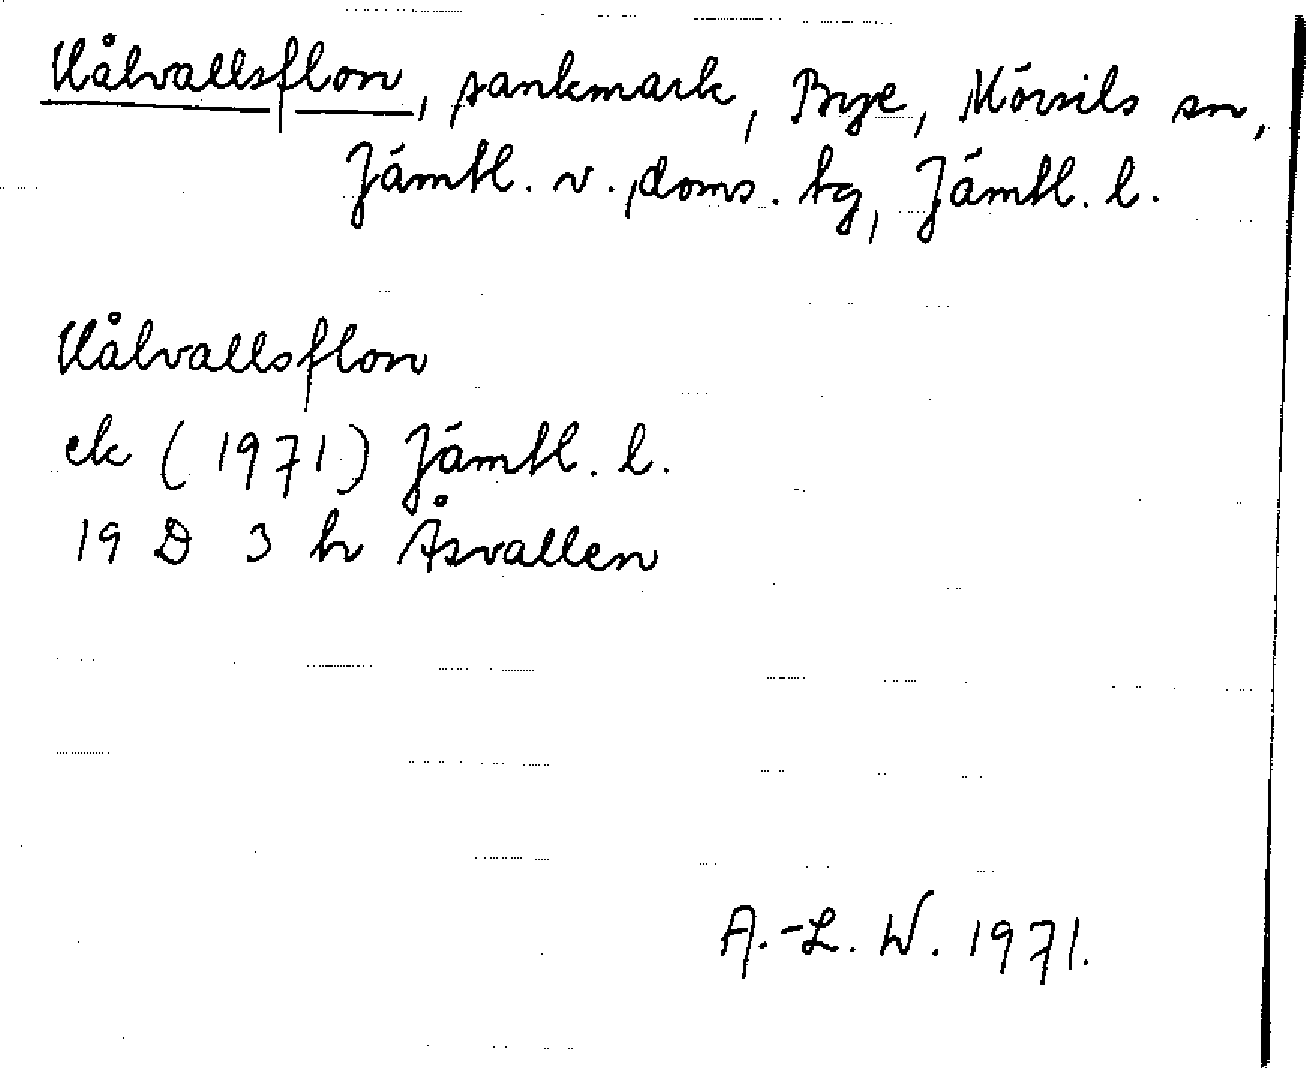 Kålvallsflon, sankmark, Bye, Mörsils sn,
Jämtl. v. doms. tg, Jämtl. l.
Kålvallsflon
ek (1971) Jämtl. l.
19 D 3 h Åsvallen
A.-L. W. 1971.